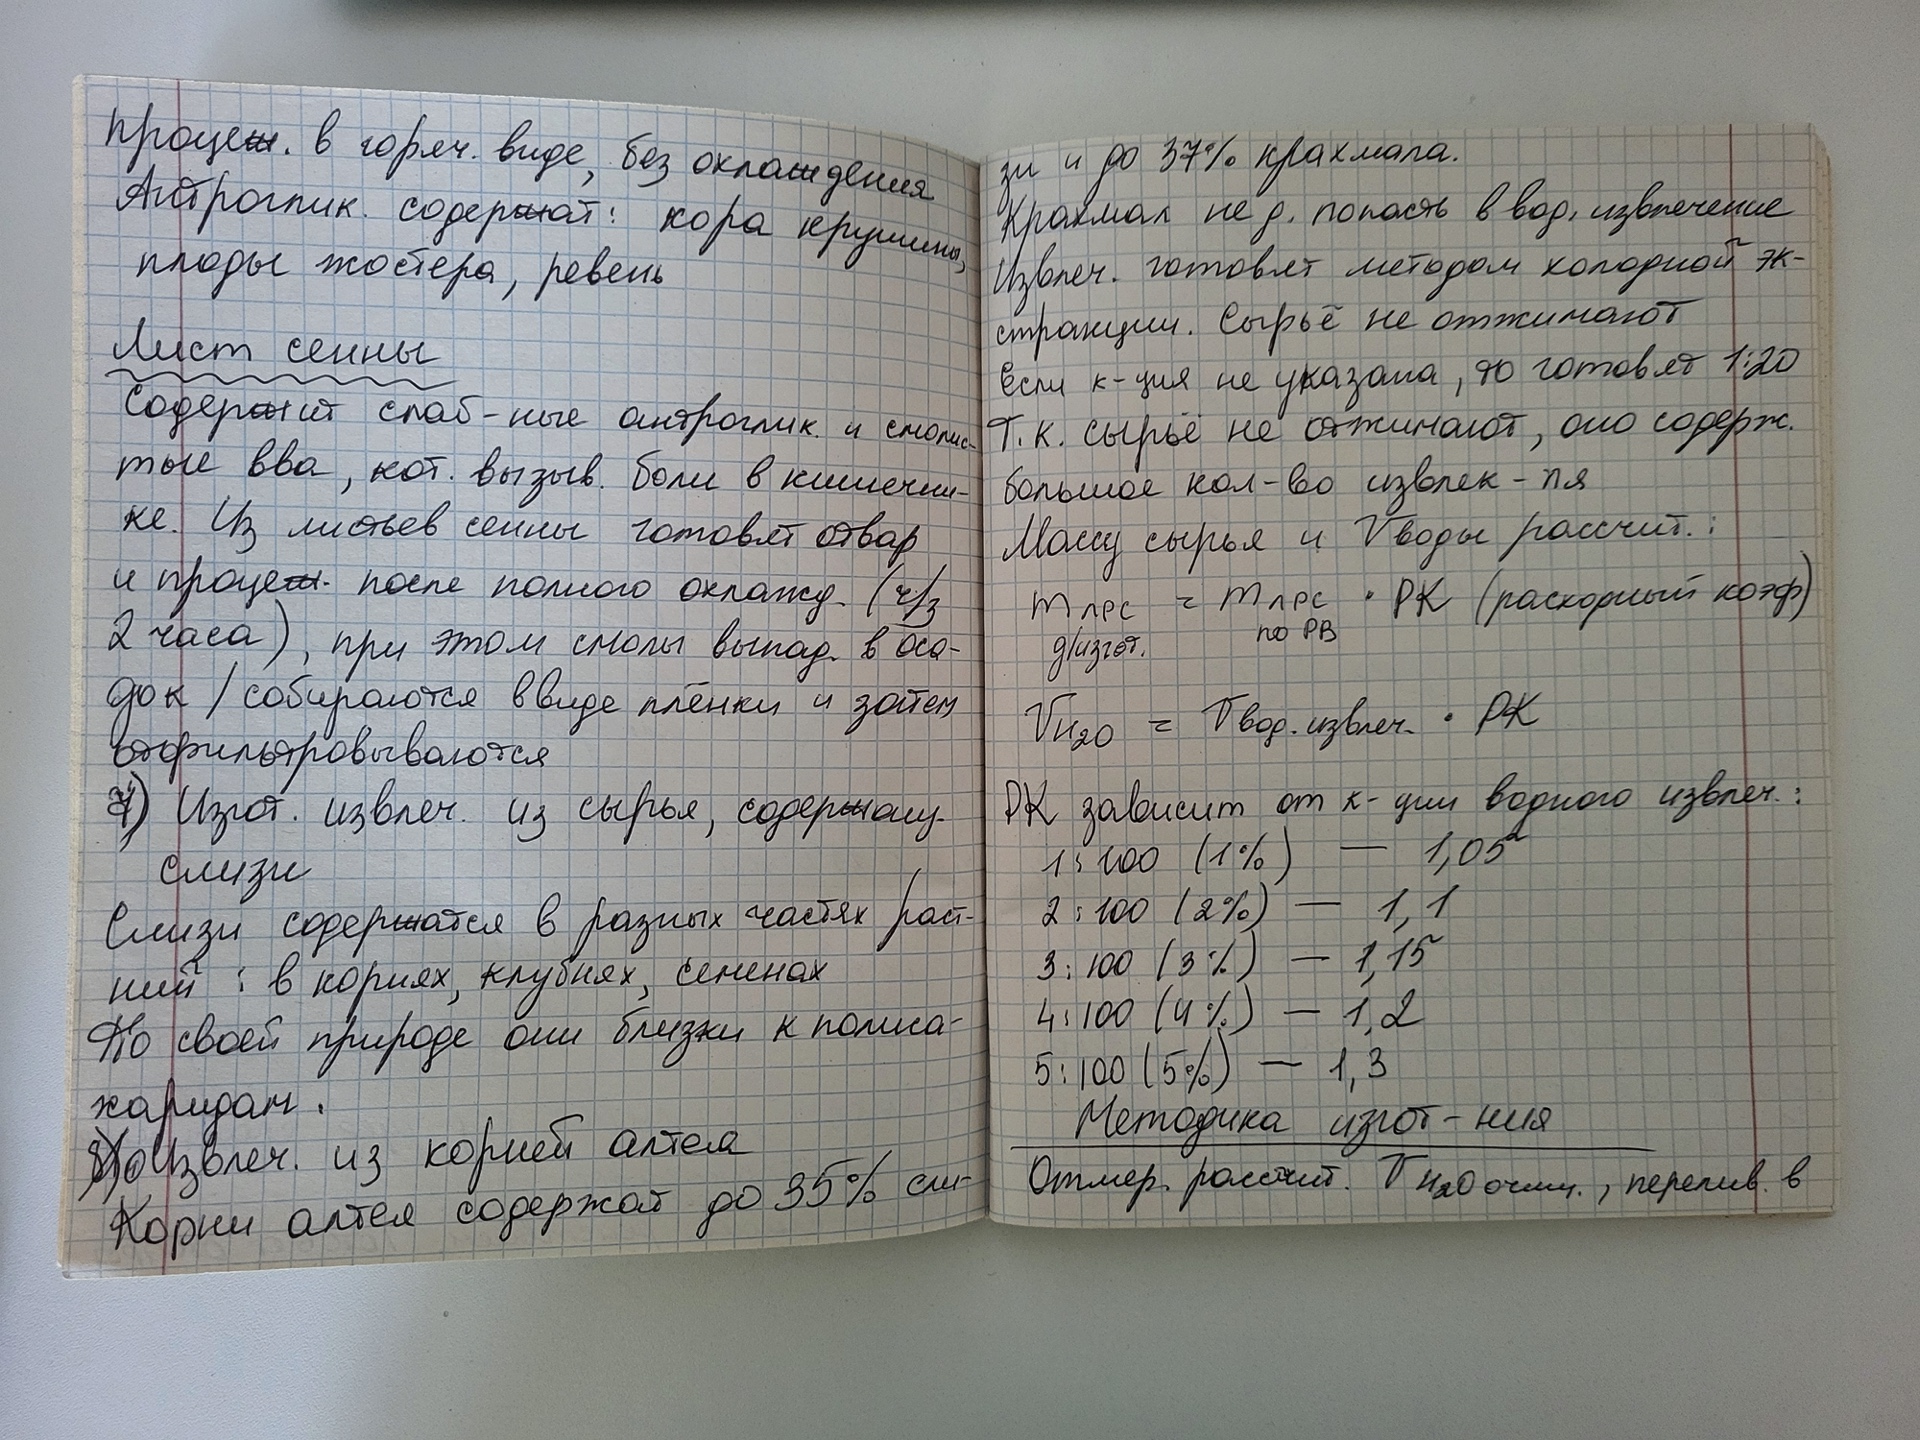 процеж. в горяч. виде, без охлаждения
Антроглик. содержат: кора крушины,
плоды жостера, ревень
Лист сенны
Содержит слаб-ные антроглик. и смолис-
тые вва, кот. вызыв. боли в кишечни-
ке. Из листьев сенны готовят отвар
и процеж. после полного охлажд. (ч/з
2 часа), при этом смолы выпад. в оса-
док / собираются в виде плёнки и затем
отфильтровываются
7) Изгот. извлеч. из сырья, содержащ.
слизи
Слизи содержатся в разных частях раст-
ний: в корнях, клубнях, семенах
По своей природе они близки к полиса-
харидам.
Извлеч. из корней алтея
Корни алтея содержат до 35% сли-
зи и до 37% крахмала.
Крахмал не д. попасть в вод. извлечение
Извлеч. готовят методом холодной эк-
стракции. Сырьё не отжимают
Если к-ция не указана, то готовят 1:20
Т.к. сырьё не отжимают, оно содерж.
большое кол-во извлек-ля
Массу сырья и V воды рассчит.:
m ЛРС д/изгот. = m ЛРС по РВ • РК (расходный коэф)
V H2O = V вод. извлеч. • РК
РК зависит от к-ции водного извлеч.:
1:100 (1%) — 1,05
2:100 (2%) — 1,1
3:100 (3%) — 1,15
4:100 (4%) — 1,2
5:100 (5%) — 1,3
Методика изгот-ния
Отмер. рассчит. V H2O очищ., перелив. в